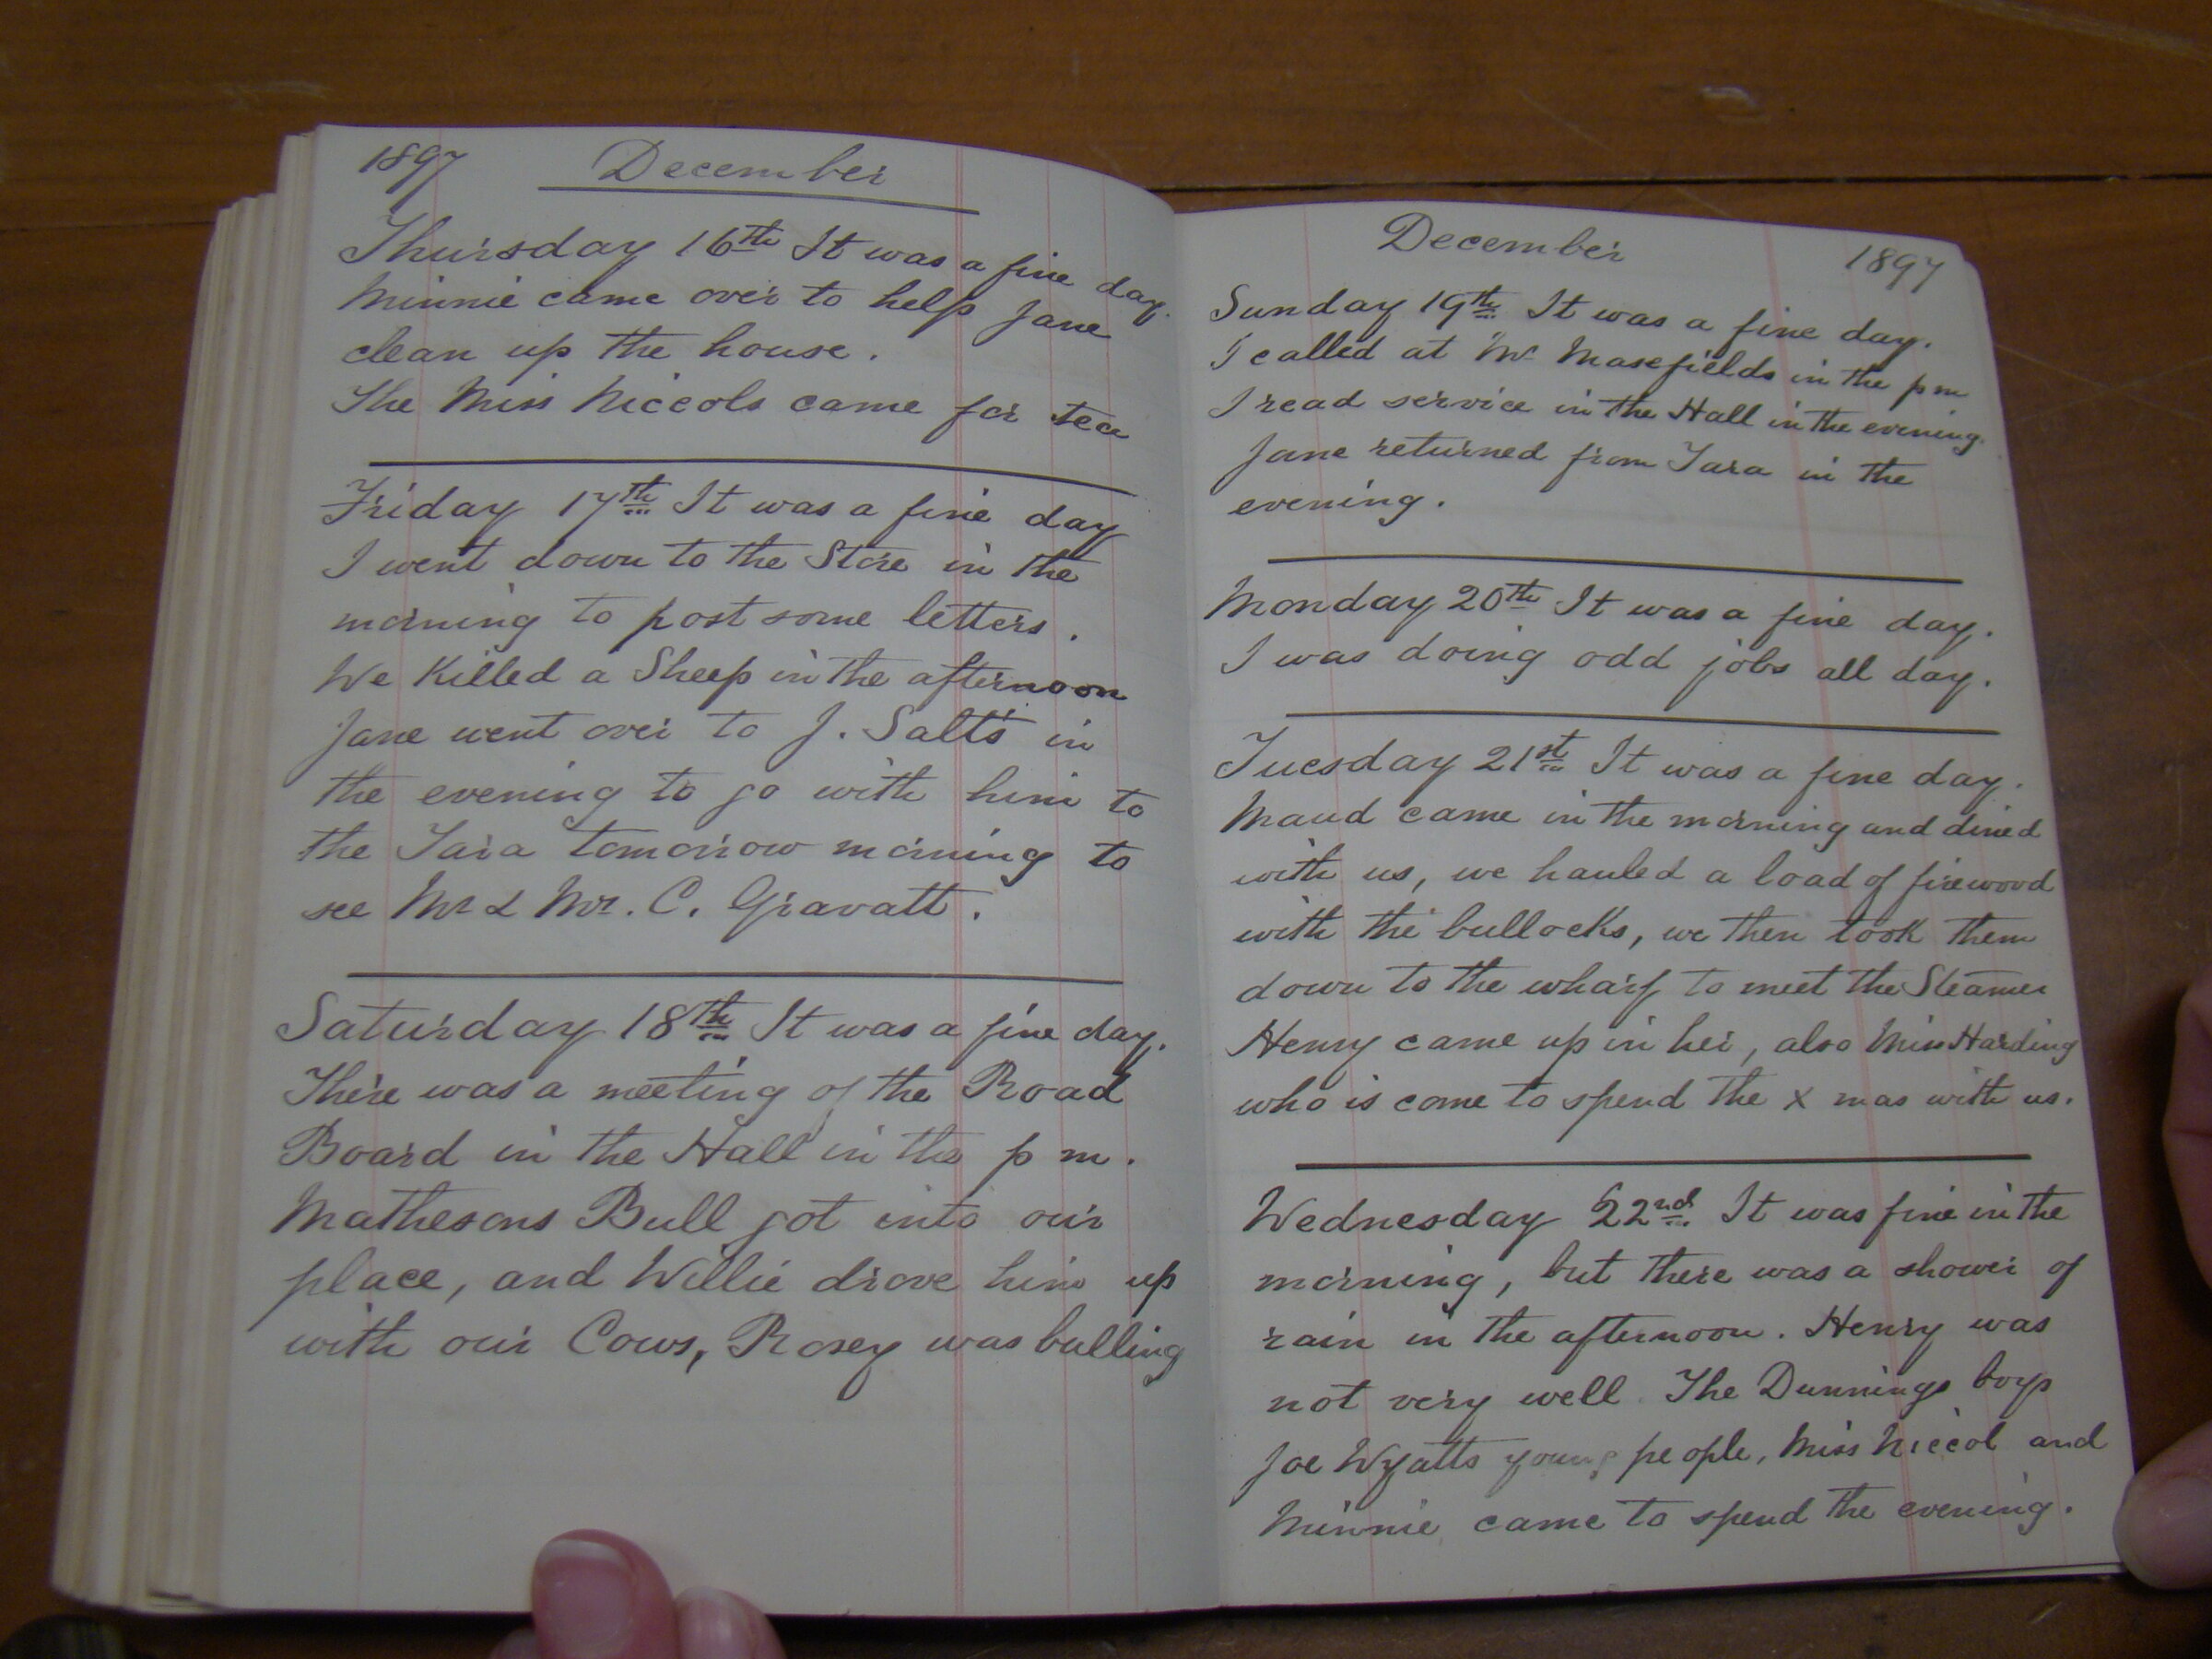 1897 December
Thursday 16th It was a fine day.
Minnie came over to help Jane
clean up the house.
The Miss Niccols came for tea
Friday 17th It was a fine day
I went down to the Store in the
morning to post some letters.
We Killed a Sheep in the afternoon
Jane went over to J. Salts in
the evening to go with him to
the Tara tomorrow morning to
see Mr & Mr. C. Gravatt.
Saturday 18th It was a fine day.
There was a meeting of the Road
Board in the Hall in the p m.
Mathesons Bull got into our
place, and Willie drove him up
with our Cows, Rosey was bulling
December 1897
Sunday 19th It was a fine day.
I called at Mr Masefields in the p m
I read service in the Hall in the evening.
Jane returned from Tara in the
evening.
Monday 20th It was a fine day.
I was doing odd jobs all day.
Tuesday 21st It was a fine day.
Maud came in the morning and dined
with us, we hauled a load of firewood
with the bullocks, we then took them
down to the wharf to meet the Steamer
Henry came up in her, also Miss Harding
who is come to spend the X mas with us.
Wednesday 22nd It was fine in the
morning, but there was a shower of
rain in the afternoon. Henry was
not very well. The Dunnings boys
Joe Wyatts young people, Miss Niccol and
Minnie came to spend the evening.